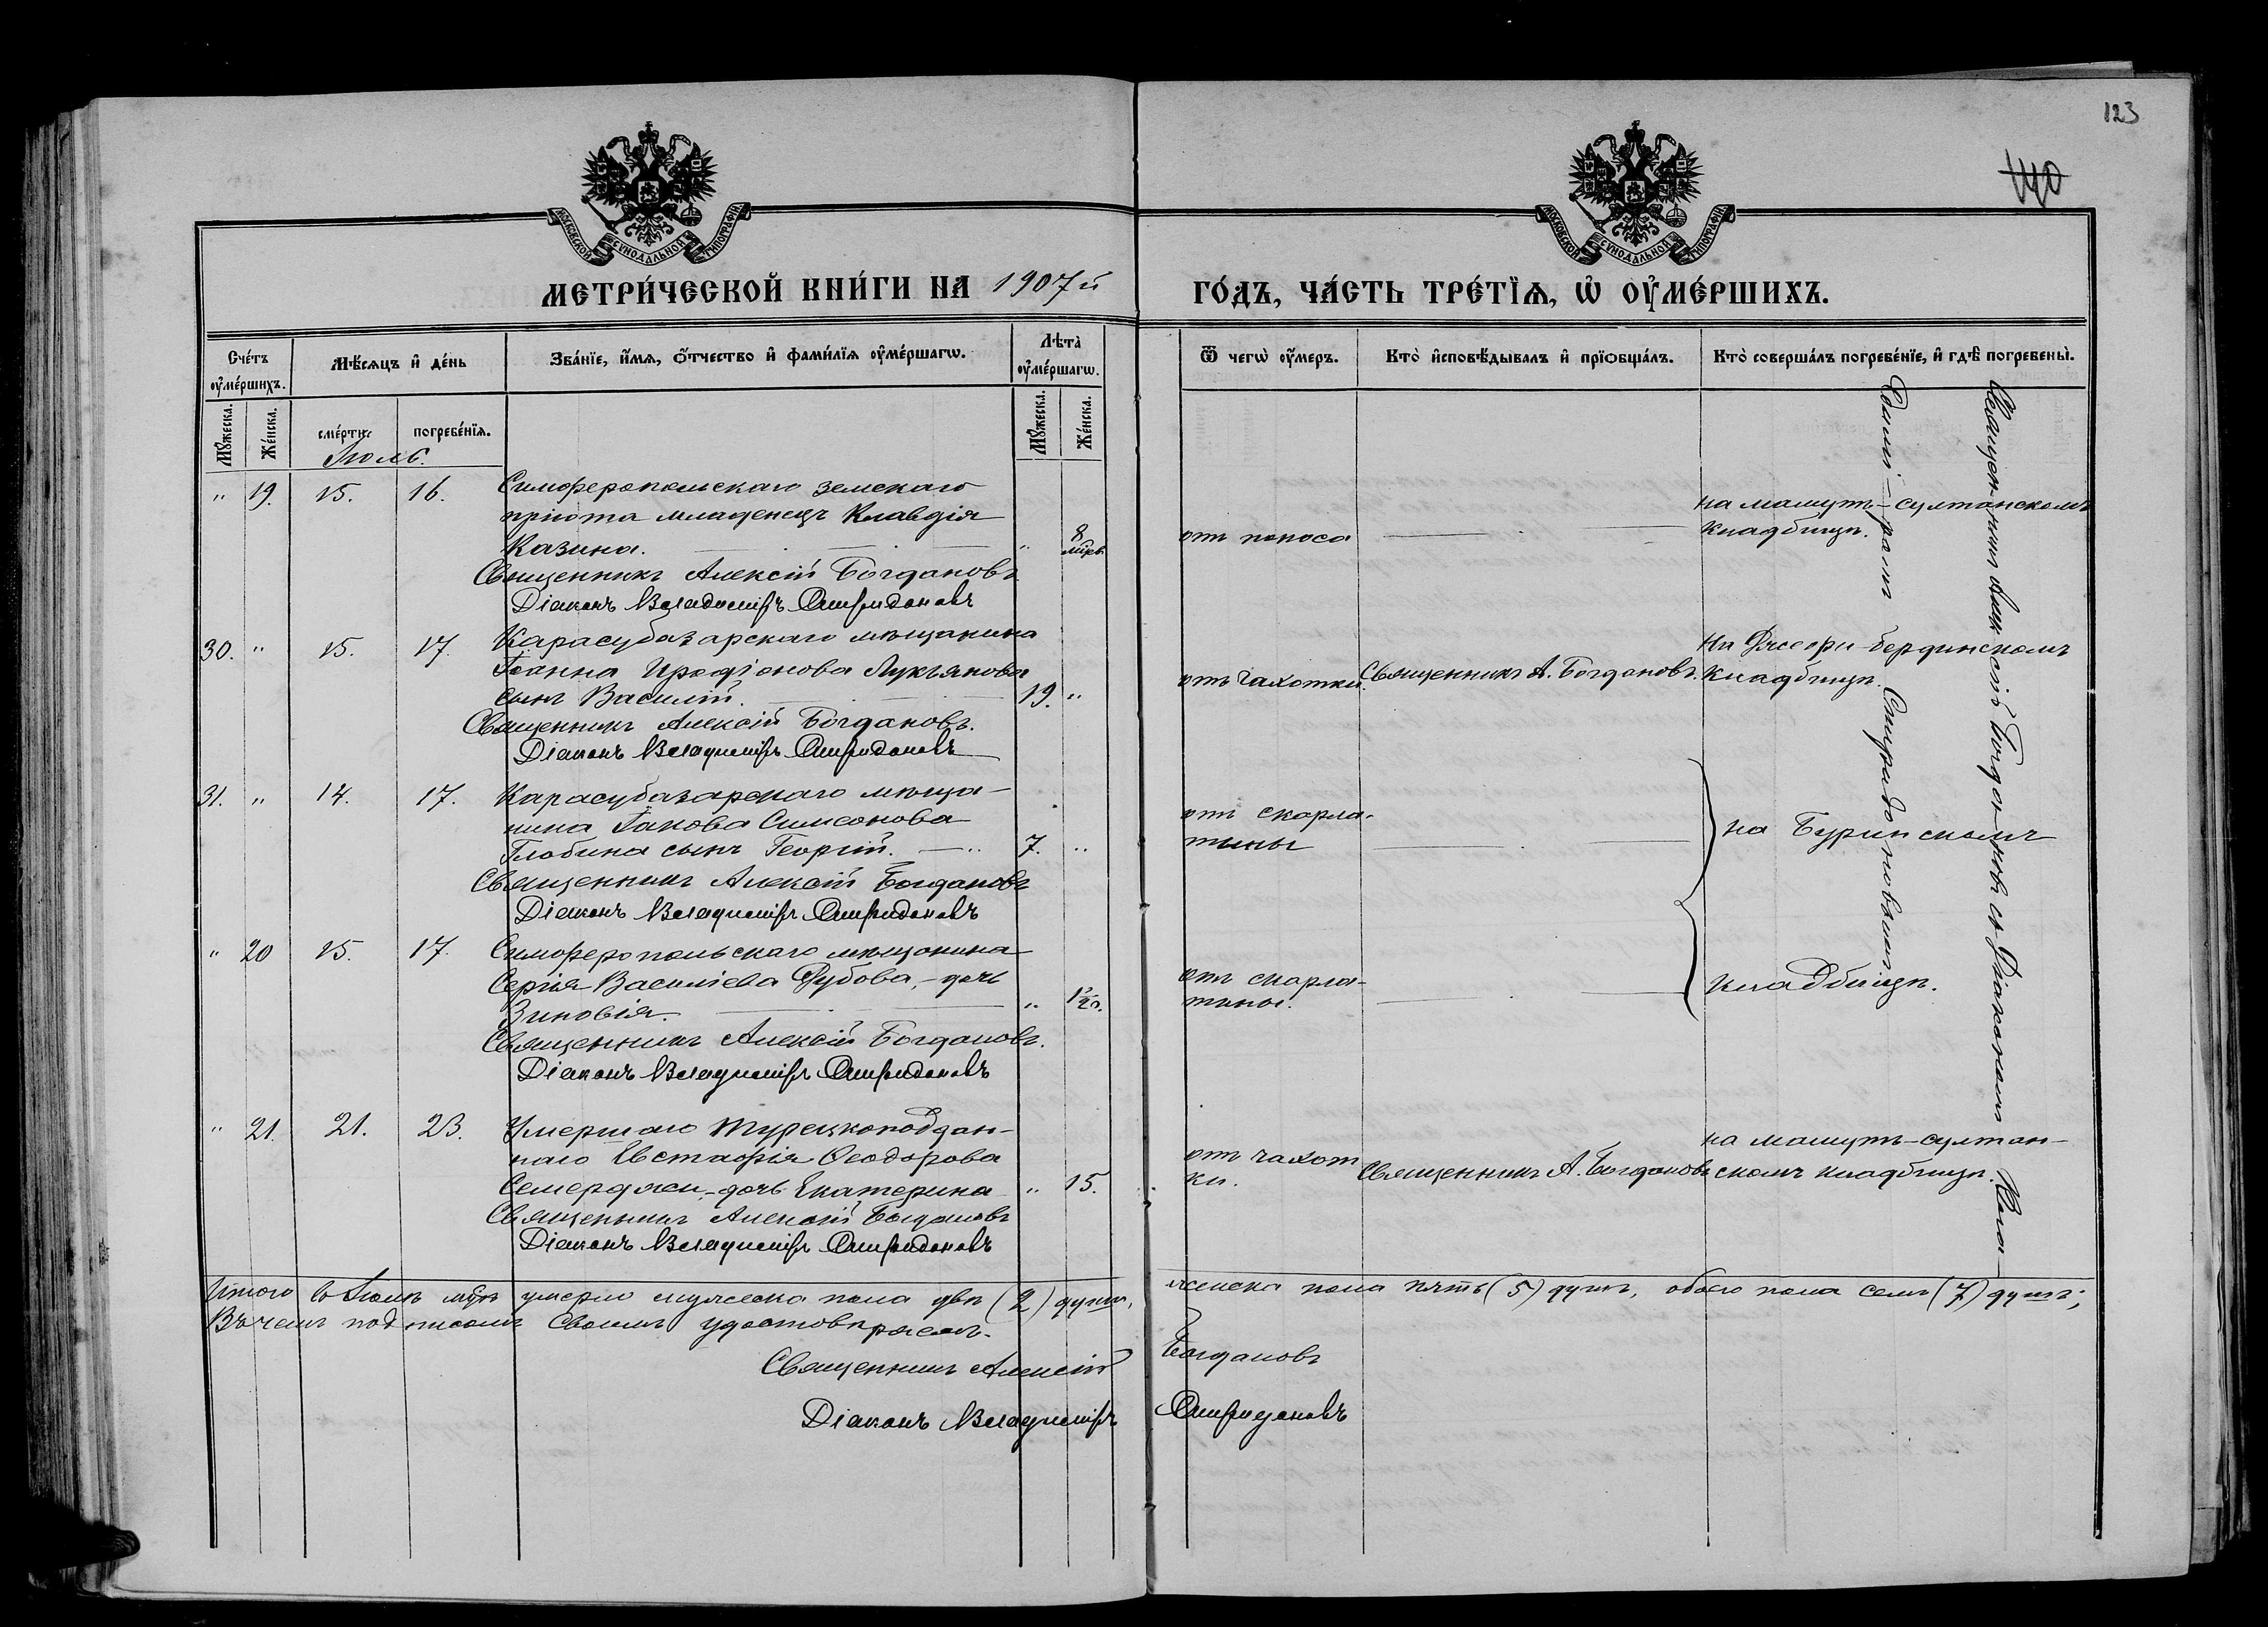 123
140
МОСКОВСКОЙ СѴНОДАЛЬНОЙ ТИПОГРАФІИ
МОСКОВСКОЙ СѴНОДАЛЬНОЙ ТИПОГРАФІИ
МЕТРИ́ЧЕСКОЙ КНИ́ГИ НА 1907й
ГО́ДЪ, ЧА́СТЬ ТРЕ́ТЇѦ, Ѡ҆ ОУ҆МЕ́РШИХЪ.
Сче́тъ оу҆ме́ршихъ.
Мѣ́сѧцъ и҆ де́нь
Зва́нїе, и҆́мѧ, ѻ҆́тчество и҆ фами́лїѧ оу҆ме́ршагѡ.
Лѣ́та оу҆ме́ршагѡ.
Ѿ чегѡ̀ оу҆́меръ.
Кто̀ и҆сповѣ́дывалъ и҆ прїѻбща́лъ.
Кто̀ соверша́лъ погребе́нїе, и҆ гдѣ̀ погребены̀.
Мꙋ́жеска.
Же́нска.
сме́рти.
погребе́нїѧ.
Мꙋ́жеска.
Же́нска.
Іюль.
" 19. 15. 16. Симферопольскаго земскаго
пріюта младенецъ Клавдія
Казина. " 8 мцвъ
Священникъ Алексій Богдановъ
Діаконъ Владиміръ Спиридоновъ
отъ поноса
на мамутъ-султанскомъ
кладбищѣ.
30. " 15. 17. Карасубазарскаго мѣщанина
Іоанна Иродіонова Лукьянова
сынъ Василій. 19. "
Священникъ Алексій Богдановъ.
Діаконъ Владиміръ Спиридоновъ
отъ чахотки.
Священникъ А. Богдановъ.
На Джефи-бердинскомъ
кладбищѣ.
31. " 14. 17. Карасубазарскаго мѣща-
нина Іакова Симеонова
Глобина сынъ Георгій. 7. "
Священникъ Алексій Богдановъ
Діаконъ Владиміръ Спиридоновъ
отъ скарла-
тины
на Бурин скомъ
" 20 15. 17. Симферопольскаго мѣщанина
Сергія Василіева Рубова, - дочь
Зиновія. " 1½ г.
Священникъ Алексій Богдановъ.
Діаконъ Владиміръ Спиридоновъ
отъ скарла-
тины.
кладбищѣ.
" 21. 21. 23. Умершаго турецкоподдан-
наго Евстафія Ѳеодорова
Семерджи-дочь Екатерина " 15.
Священникъ Алексій Богдановъ
Діаконъ Владиміръ Спиридоновъ
отъ чахот
ки.
Священникъ А. Богдановъ
на мамутъ-султан-
скомъ кладбищѣ.
Священникъ Алексій Богдановъ съ Діакономъ Влад
иміромъ Спиридоновымъ
Итого въ Іюлѣ мцѣ умерло мужеска пола двѣ (2) души, женска пола пять (5) душъ, обоего пола семь (7) душъ;
Въ чемъ подписомъ своимъ удостовѣряемъ.
Священникъ Алексій Богдановъ
Діаконъ Владиміръ Спиридоновъ